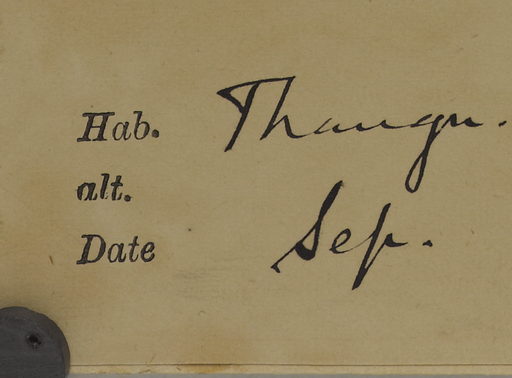 Hab. Thaungu.
alt.
Date Sep.